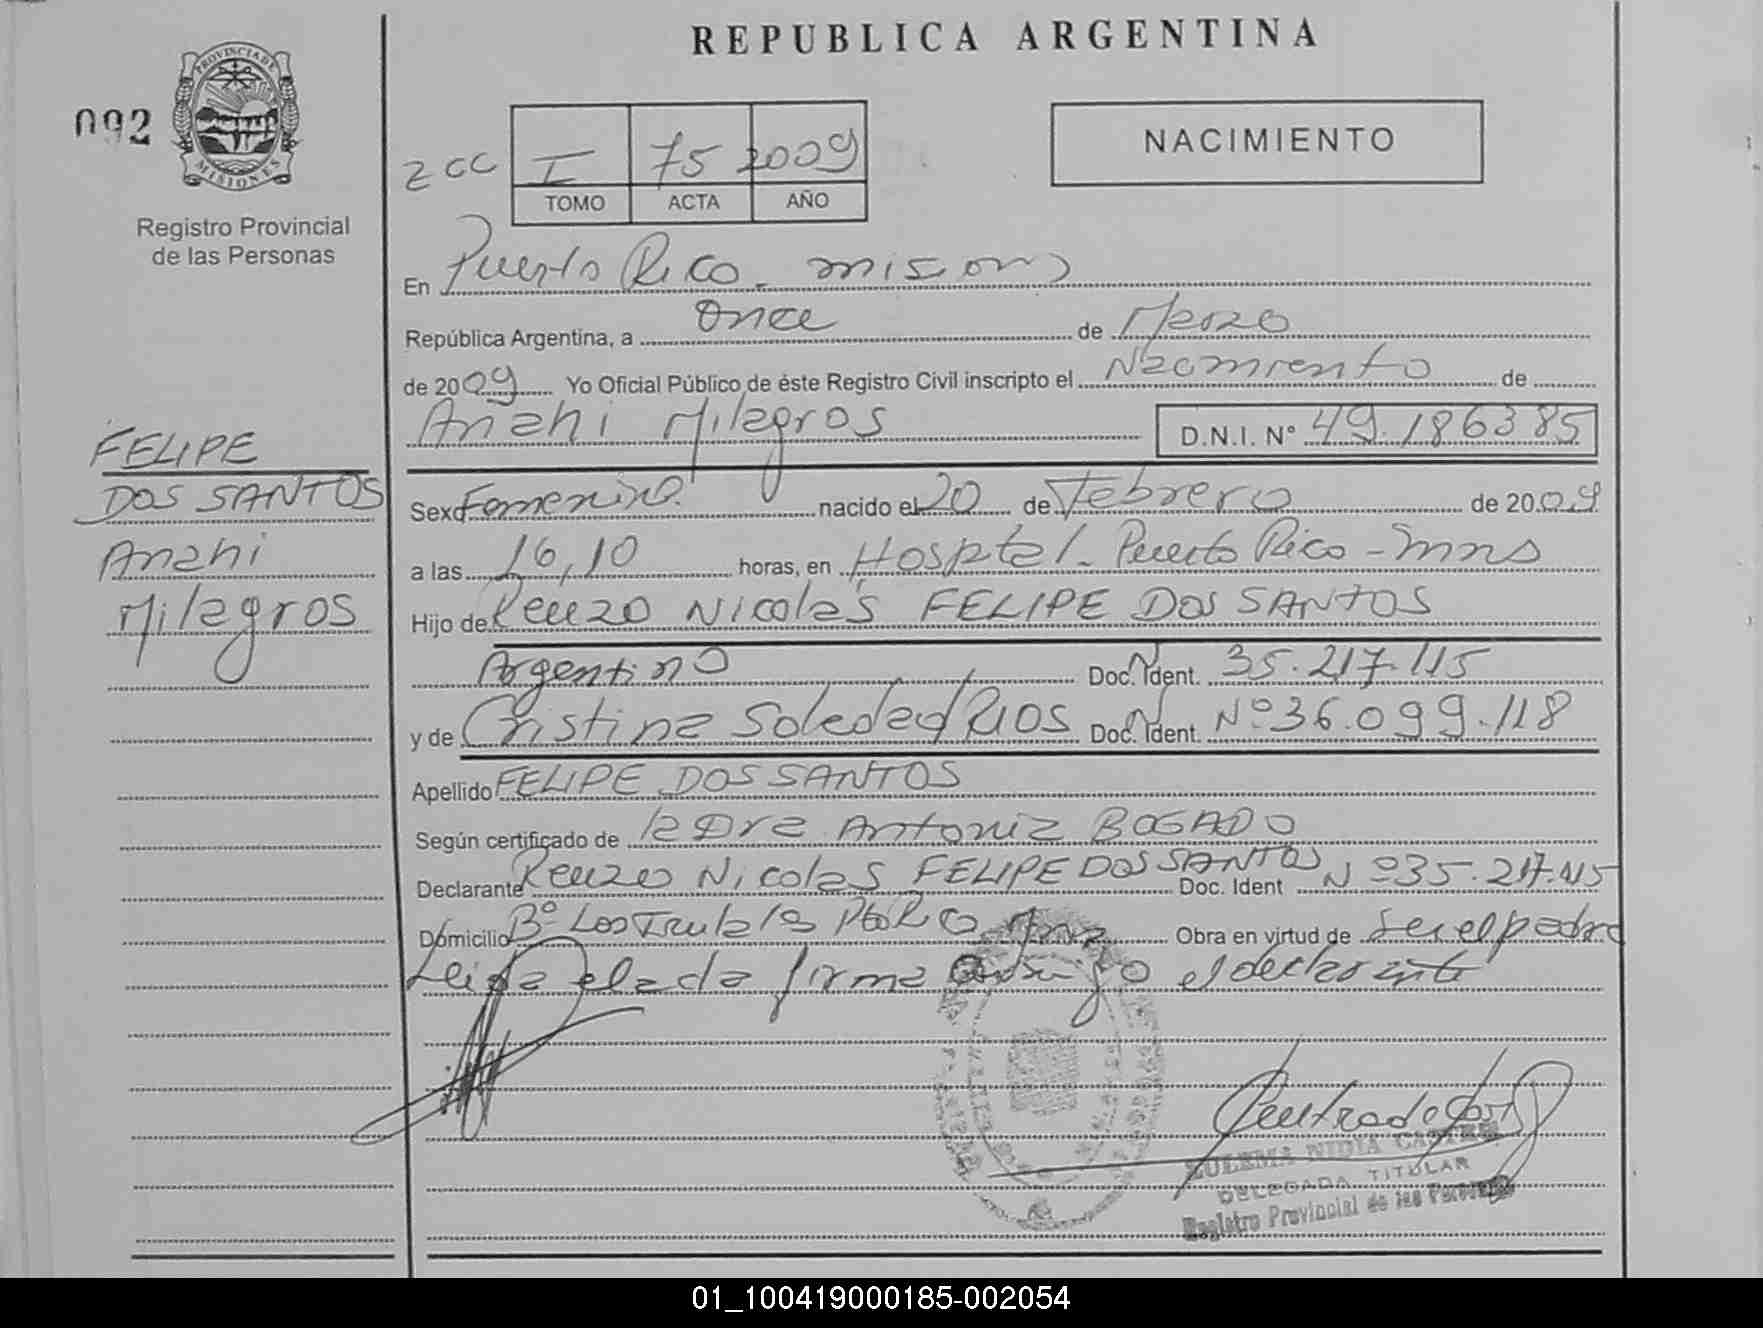 REPUBLICA ARGENTINA
PROVINCIA DE
MISIONES
092
Registro Provincial
de las Personas
2 CC I 75 2009
TOMO ACTA AÑO
NACIMIENTO
En Puerto Rico - Misiones
República Argentina, a Once de Marzo
de 2009 Yo Oficial Público de éste Registro Civil inscripto el Nacimiento de
Anahi Milagros D.N.I. Nº 49.186385
FELIPE
DOS SANTOS
Anahi
Milagros
Sexo Femenino. nacido el 20 de Febrero de 2009
a las 16,10 horas, en Hosptal - Puerto Rico - Mnes
Hijo de Renzo Nicolás FELIPE DOS SANTOS
Argentino Doc. Ident. Nº 35.217.115
y de Cristina Soledad RIOS Doc. Ident. Nº 36.099.118
Apellido FELIPE DOS SANTOS
Según certificado de la Dra Antonia BOGADO
Declarante Renzo Nicolas FELIPE DOS SANTOS Doc. Ident Nº 35.217.115
Domicilio Bº Los Pto Rico Obra en virtud de Ser el padre
Leida el acta firma conmigo el declarante
ZULEMA NIDIA
DELEGADA TITULAR
Registro Provincial de las Personas
01_100419000185-002054